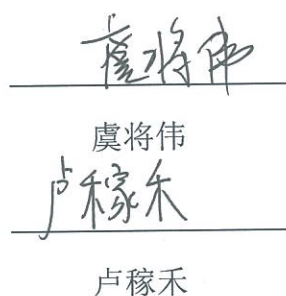 虞将伟
虞将伟
卢稼禾
卢稼禾